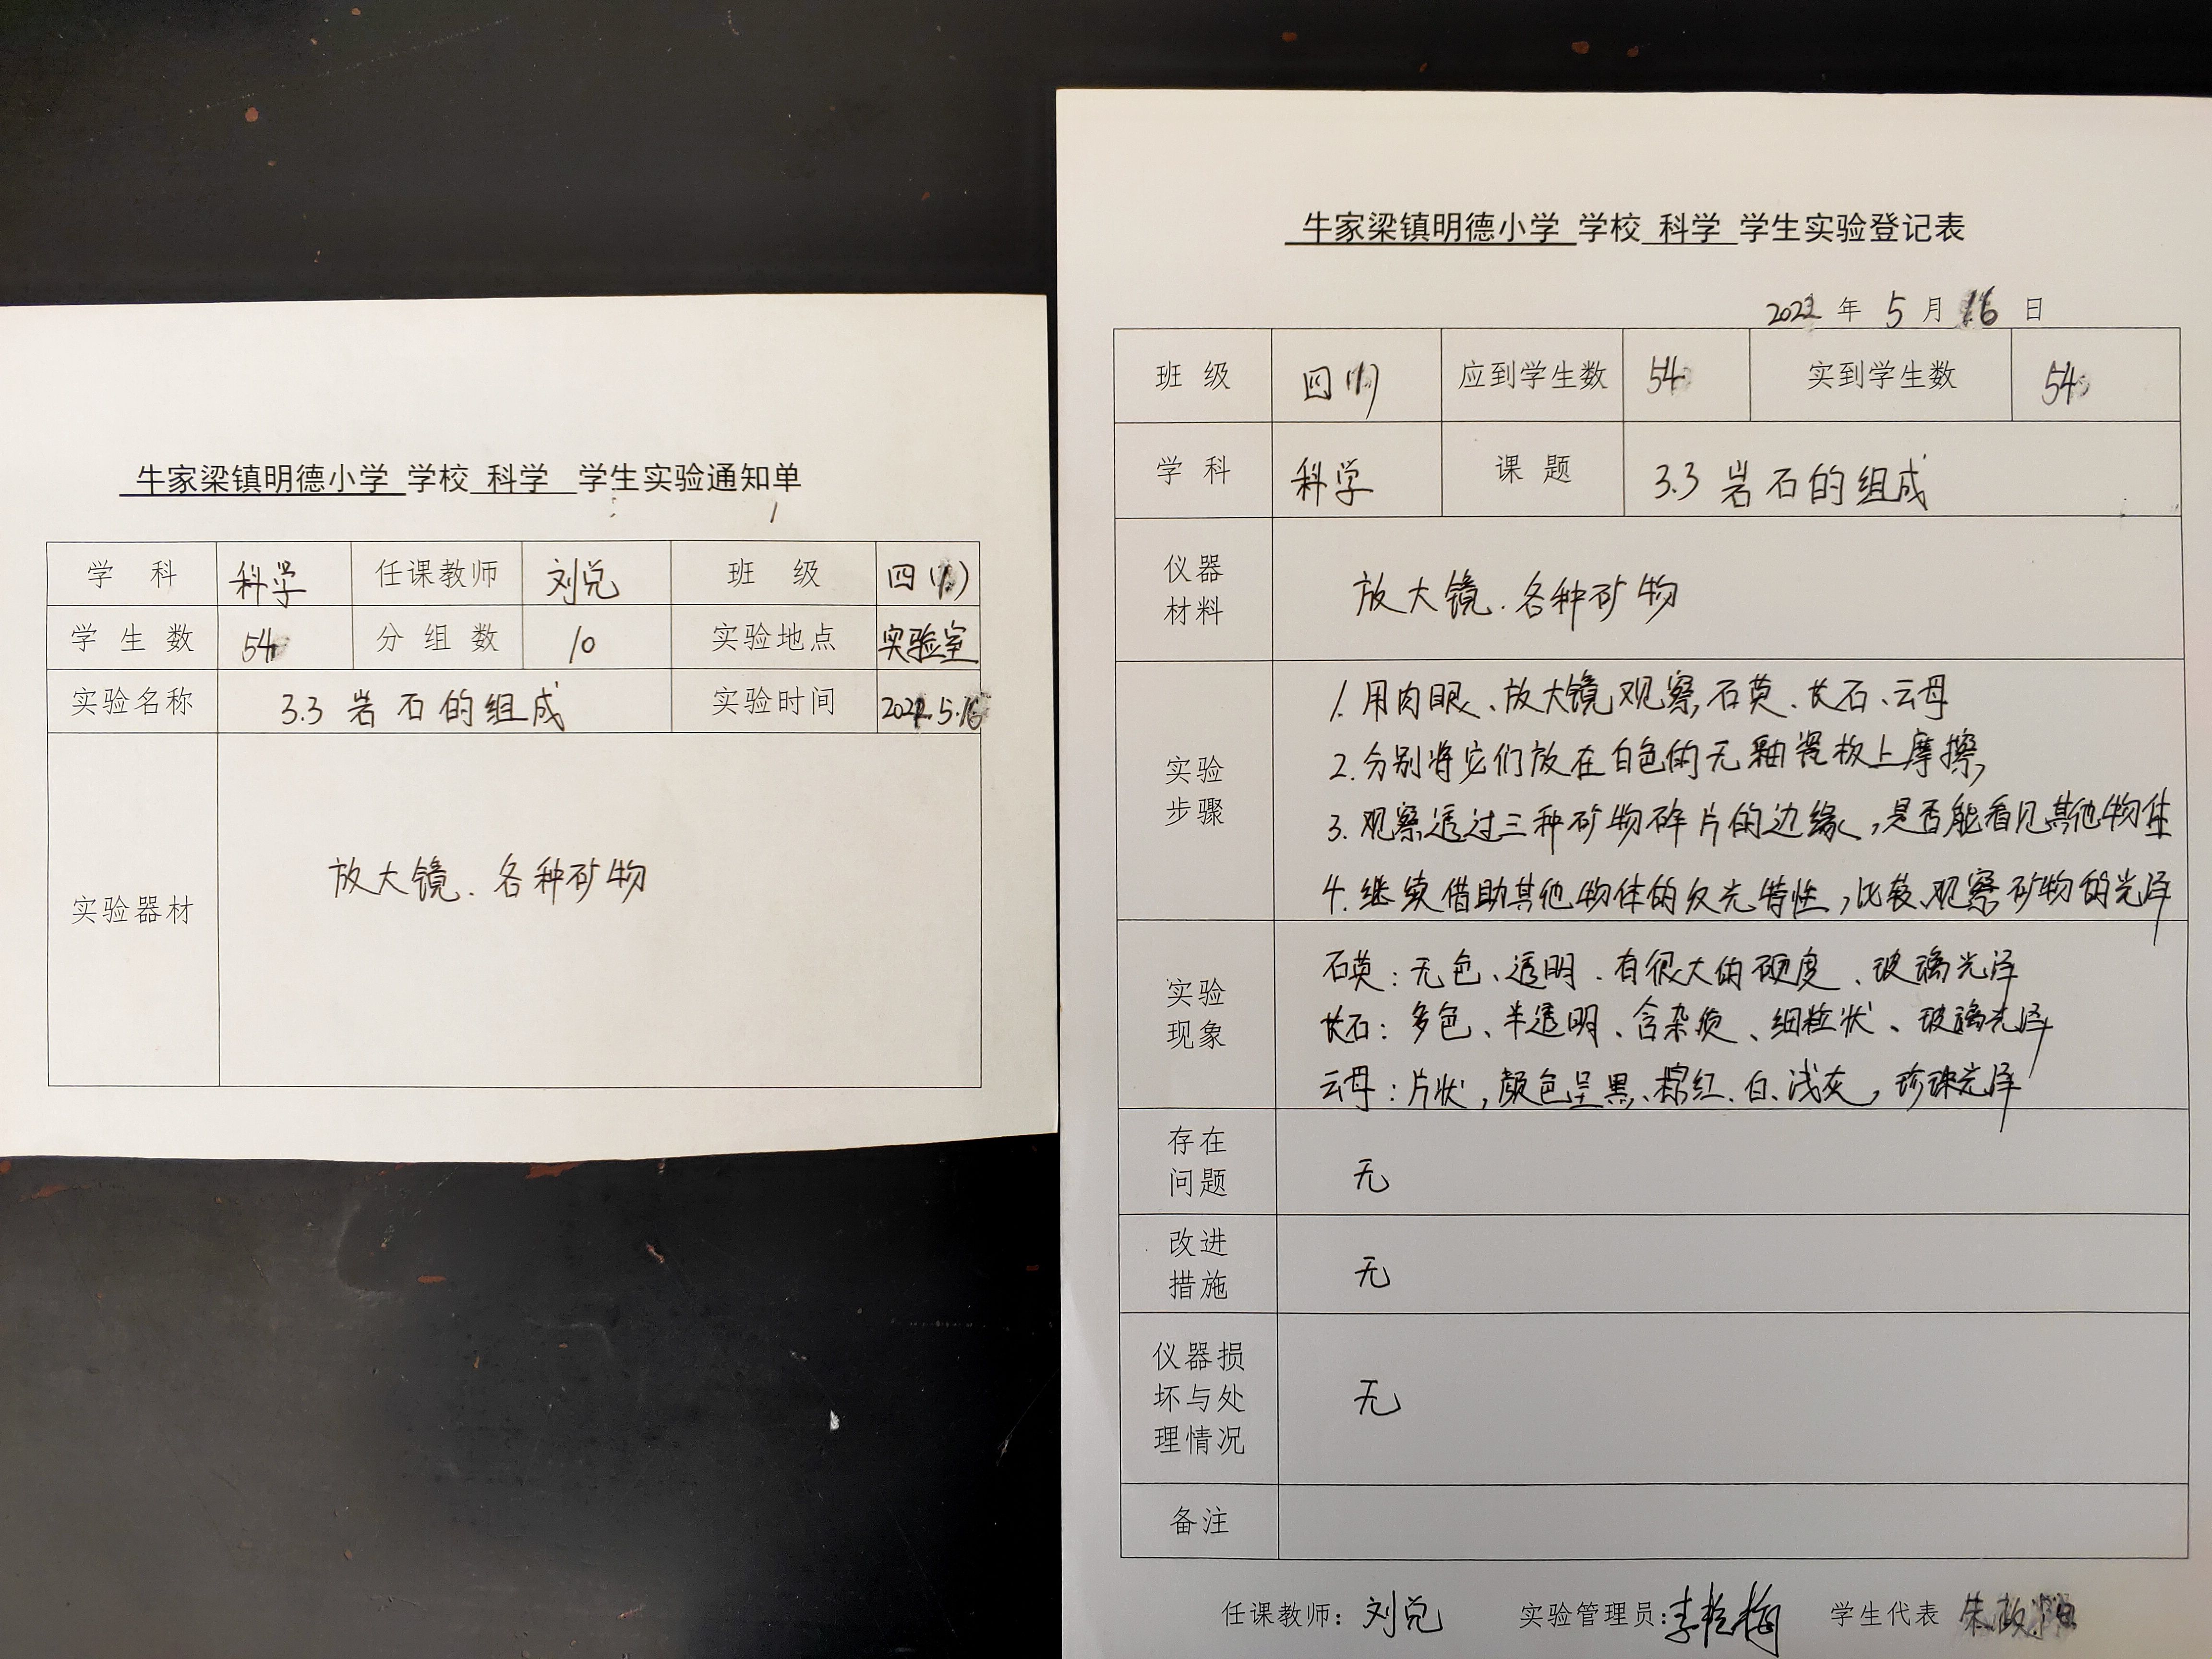 牛家梁镇明德小学 学校 科学 学生实验通知单
学 科 科学 任课教师 刘兑 班 级 四(1)
学 生 数 54 分 组 数 10 实验地点 实验室
实验名称 3.3 岩石的组成 实验时间 2022.5.16
实验器材 放大镜、各种矿物
牛家梁镇明德小学 学校 科学 学生实验登记表
2022 年 5 月 16 日
班 级 四(1) 应到学生数 54 实到学生数 54
学 科 科学 课 题 3.3 岩石的组成
仪器
材料
放大镜、各种矿物
实验
步骤
1. 用肉眼、放大镜观察石英、长石、云母
2. 分别将它们放在白色的无釉瓷板上摩擦,
3. 观察透过三种矿物碎片的边缘,是否能看见其他物体
4. 继续借助其他物体的反光特性,比较、观察矿物的光泽
实验
现象
石英:无色、透明、有很大的硬度、玻璃光泽
长石:多色、半透明、含杂质、细粒状、玻璃光泽
云母:片状,颜色呈黑、棕红、白、浅灰,珍珠光泽
存在
问题
无
改进
措施
无
仪器损
坏与处
理情况
无
备注
任课教师:刘兑 实验管理员: 学生代表